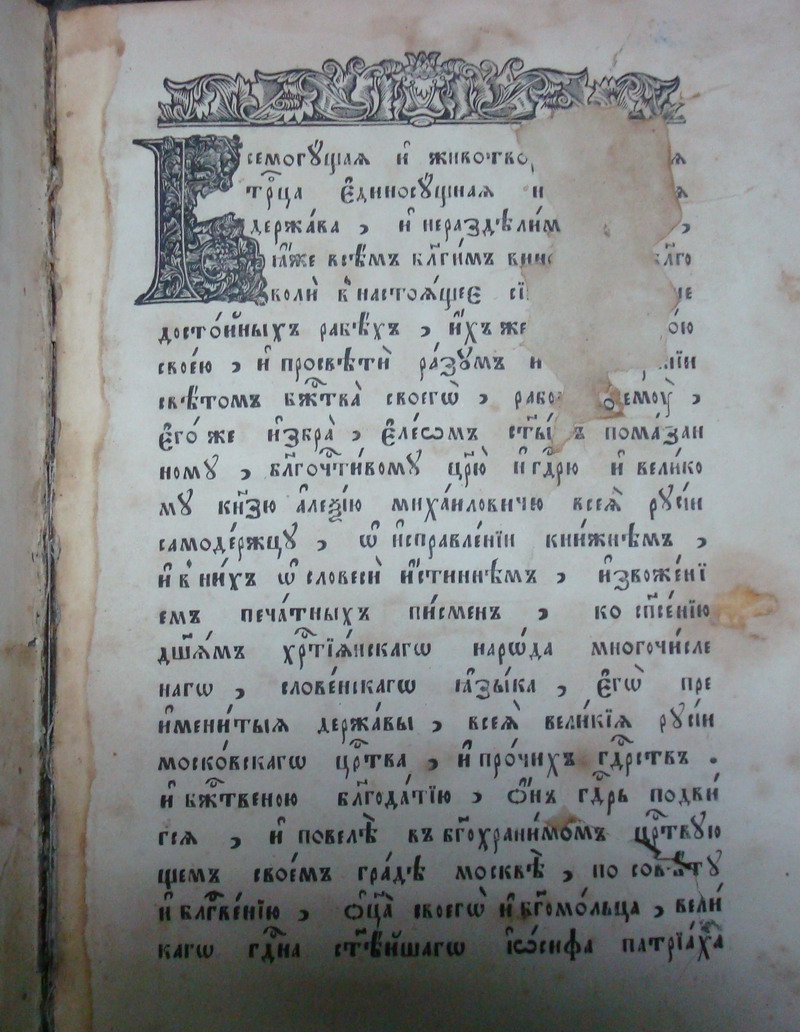 Всемогꙋ́щаѧ и҆ живот
трⷪ҇ца є҆диносꙋ́щнаѧ и
держа́ва , и҆ нераздѣли́м ,
ꙗ҆́же всѣ́мъ бл҃ги́мъ вин бл҃го
воли̑ в настоѧ́щее сї
досто́йныхъ рабѣ́хъ , и҆́хъ же
свое́ю , и҆ просвѣтѝ ра́зꙋмъ и
свѣ́томъ бж҃твà своегѡ̀ ,
є҆го́ же и҆збрà , є҆ле́ѡмъ ст҃ы́ ъ пома́зан
номꙋ , бл҃гочⷭ҇ти́вомꙋ цр҃ю̀ и҆ гдⷭ҇рю и҆ вели́ко
мꙋ кн҃зю а҆леѯі́ю миха́иловичю всеѧ̀ рꙋсі́и
самоде́ржцꙋ , ѡ҆ и҆справле́нїи кни́жнѣмъ ,
и҆ в ни́хъ ѡ҆ словесѝ и҆́стиннѣмъ , и҆зvоже́нї
емъ печа́тныхъ пи́сменъ , ко сп҃се́нїю
дш҃а́мъ хрⷭ҇тїѧ́нскагѡ наро́да многочи́сле
нагѡ , слове́нскагѡ ꙗ҆зы́ка , є҆гѡ̀ пре
и҆мени́тыѧ держа́вы , всеѧ̀ вели́кїѧ рꙋсі́и
моско́вскагѡ црⷭ҇тва , и҆ про́чихъ гдⷭ҇рствъ .
и҆ бжⷭ҇твеною бл҃года́тїю , ѻ҆́нъ гдⷭ҇рь подви́
гсѧ , и҆ повелѣ̀ въ бг҃охрани́момъ црⷭ҇твꙋю
щемъ свое́мъ гра́дѣ москвѣ̀ , по совѣ́тꙋ
и҆ блгⷭ҇ве́нїю , ѻ҆ц҃а̀ своегѡ̀ и҆ бг҃омо́льца , вели́
кагѡ гдⷭ҇на ст҃ѣ́йшагѡ і҆ѡ́сифа патрїа́рха